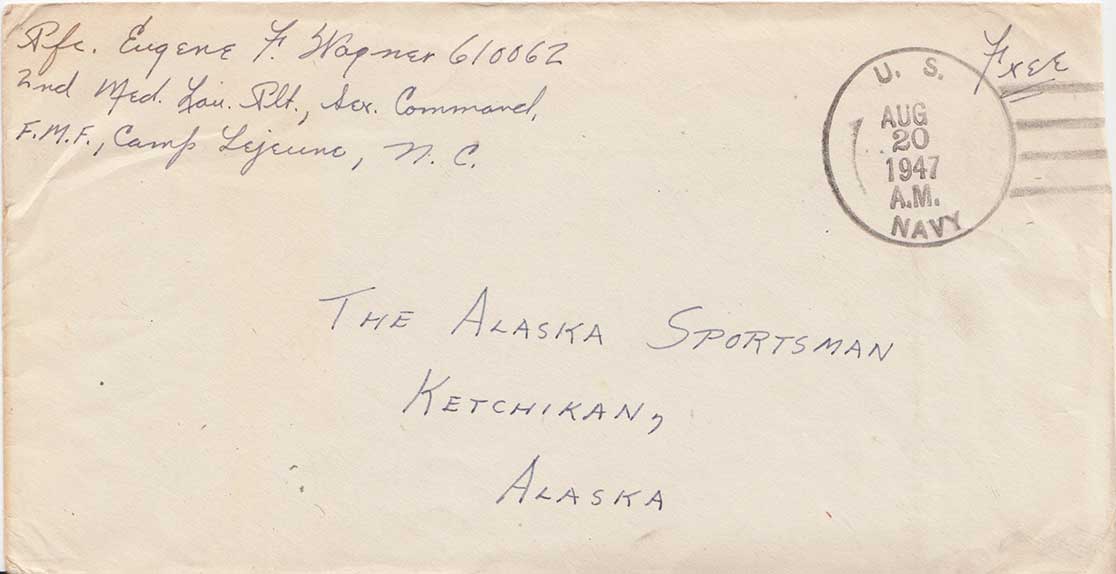 Pfc. Eugene F. Wagner 610062
2nd Med. Lau. Plt., Ser. Command,
F.M.F., Camp Lejeune, N.C.
Free
U. S.
AUG
20
1947
A.M.
NAVY
THE ALASKA SPORTSMAN
KETCHIKAN,
ALASKA